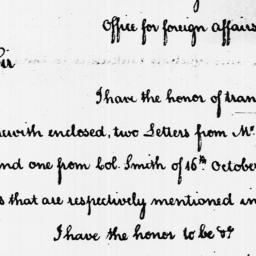 Office for foreign affairs
Sir
I have the honor of tran
ewith enclosed, two Letters from Mr.
nd one from Col. Smith of 16th October
s that are respectively mentioned in
I have the honor to be &c